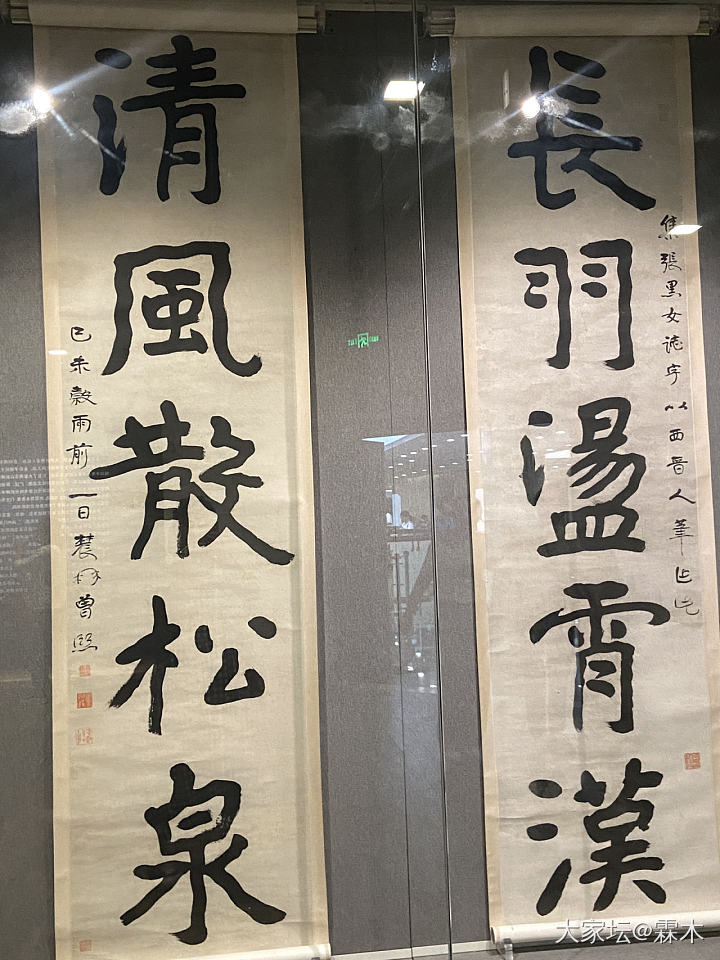 長羽盪霄漢
集張黑女誌字以西晉人筆
清風散松泉
己未穀雨前一日農髯曾熙
大家坛@霖木